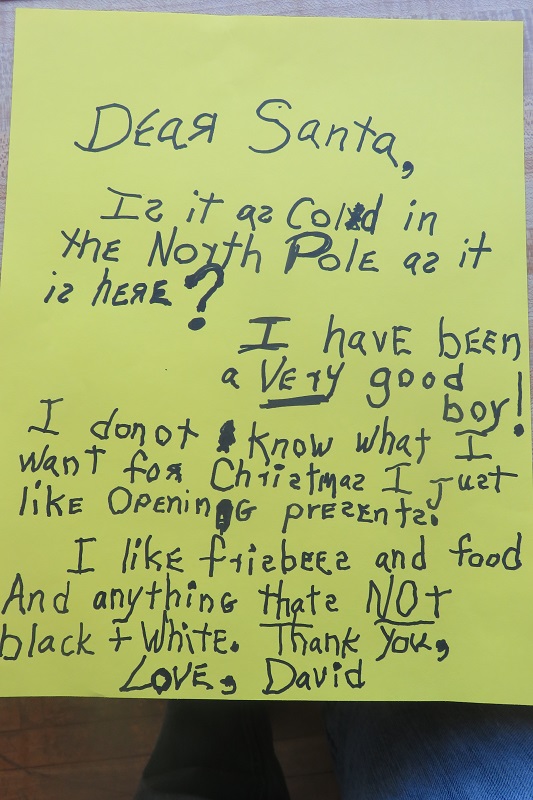 Dear Santa,
Is it as Cold in
the North Pole as it
is here?
I have been
a Very good
boy!
I donot know what I
want for Christmas I just
like Opening presents.
I like frisbees and food
And anything thats NOt
black + White. Thank you,
Love, David